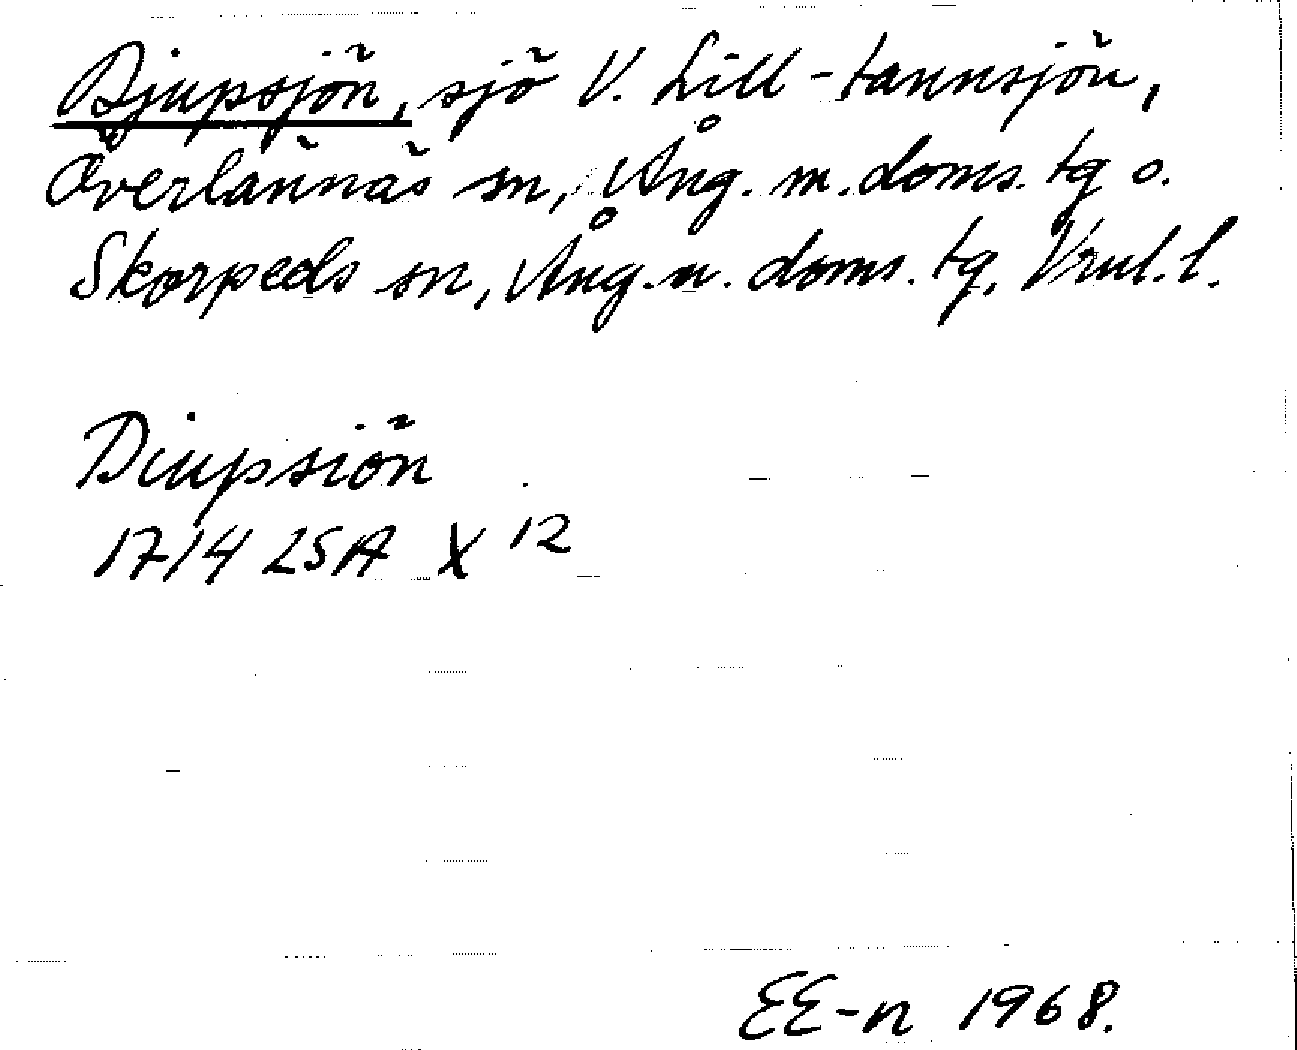 Djupsjön, sjö V. Lill-tannsjön,
Överlännäs sn, Ång. m. doms. tg o.
Skorpeds sn, Ång. n. doms. tg, Vrnl. l.
Diupsiön
1714 LSA X 12
EE-n 1968.